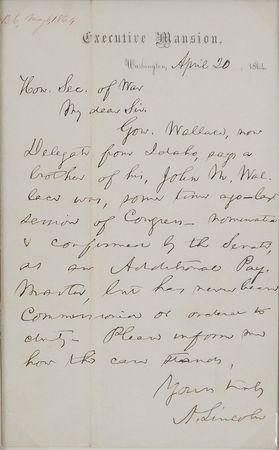 B 6, May 3, 1864
Executive Mansion,
Washington, April 20, 1864
Hon. Sec. of War
My dear Sir.
Gov. Wallace, now
Delegate from Idaho, says a
brother of his, John M. Wal-
lace was, some time ago—last
session of Congress—nominated
& confirmed by the Senate,
as an Additional Pay-
Master, but has never been
Commissioned or ordered to
duty— Please inform me
how the case stands,
Yours truly
A. Lincoln